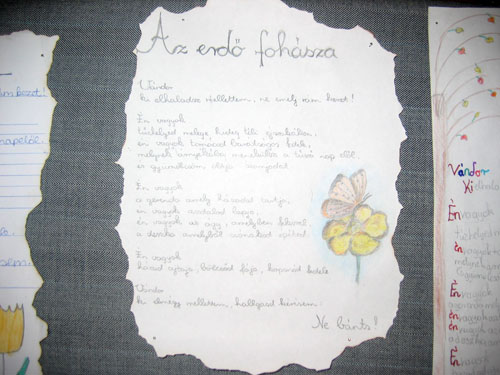 Az erdő fohásza
Vándor
ki elhaladsz mellettem, ne emelj rám kezet!
Én vagyok
tűzhelyed melege, hideg téli éjszakákon,
én vagyok tornácod barátságos fedele,
melynek árnyékába menekülsz a tűző nap elől,
és gyümölcsöm oltja szomjadat.
Én vagyok
a gerenda amely házadat tartja,
én vagyok asztalod lapja,
én vagyok az ágy, amelyben fekszel
a deszka amelyből csónakod építed.
Én vagyok
házad ajtaja, bölcsőd fája, koporsód fedele
Vándor
ki elmégy mellettem, hallgasd kérésem:
Ne bánts!
Vándor
Ki
Én vagyok
Én
Én
Én
én
Én vagyok